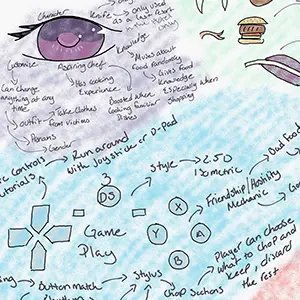 Character
Knife
is only used
as a last resort
Knowledge
Customise
Aspiring chef
Muses about
Food randomly
Can change
anything at any
time
Has cooking
Experience
Gives food
Knowledge
Boosted when
Cooking familiar
Dishes
Especially when
Shopping
outfit
Take clothes
from victims
Pronouns
Gender
Controls
tutorials
Run around
with Joystick or D-Pad
Style
2.5D
Isometric
3
DS
Game
Play
X
Y
A
B
Friendship/Hostility
Mechanic
Dad
Button match
Stylus
Chop Sections
Player can choose
what to chop and
Keep, discard
the rest